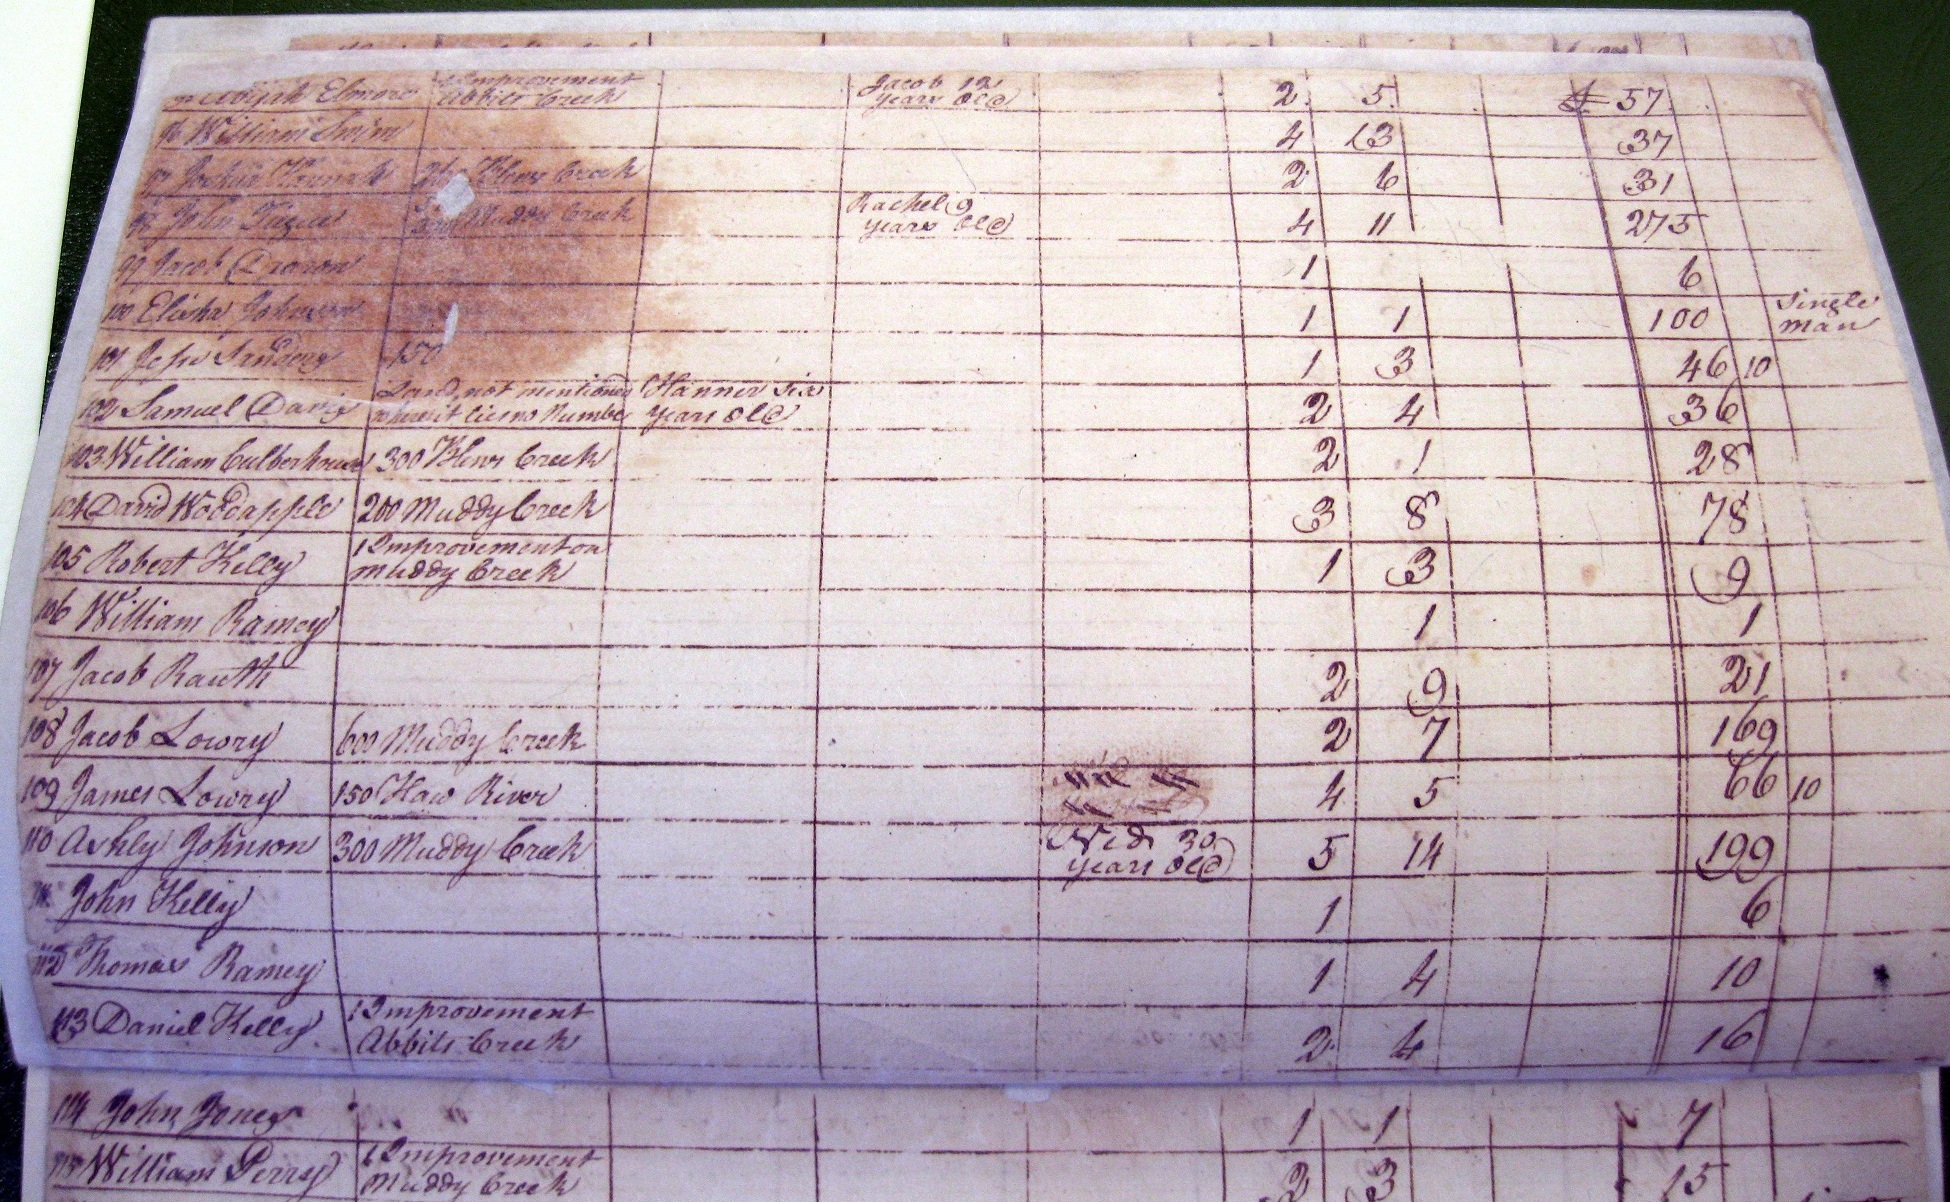 Elmore 1 Improvement Abbits Creek Jacob 12 years old 2 5 £ 57
96 William 4 13 37
97 Hannah Blews Creek 2 6 31
98 John Muddy Creek Rachel 9 years old 4 11 275
99 Jacob 1 6
100 Elisha Johnson 1 1 100 Single man
101 Jesse Sanders 150 1 3 46 10
102 Samuel Davis Land not mentioned where it lies no Number Hanner Six years old 2 4 36
103 William Culberhouse 300 Blews Creek 2 1 28
104 David Woddapple 200 Muddy Creek 3 8 78
105 Robert Kelly 1 Improvement on Muddy Creek 1 3 9
106 William Ramey 1 1
107 Jacob Rauth 2 9 21
108 Jacob Lowry 600 Muddy Creek 2 7 169
109 James Lowry 150 Haw River 4 5 66 10
110 Ashly Johnson 300 Muddy Creek Ned 30 years old 5 14 199
John Kelly 1 6
112 Thomas Ramey 1 4 10
113 Daniel Kelly 1 Improvement Abbits Creek 2 4 16
114 John Jones 1 1 7
115 William Perry 1 Improvement Muddy Creek 2 3 15